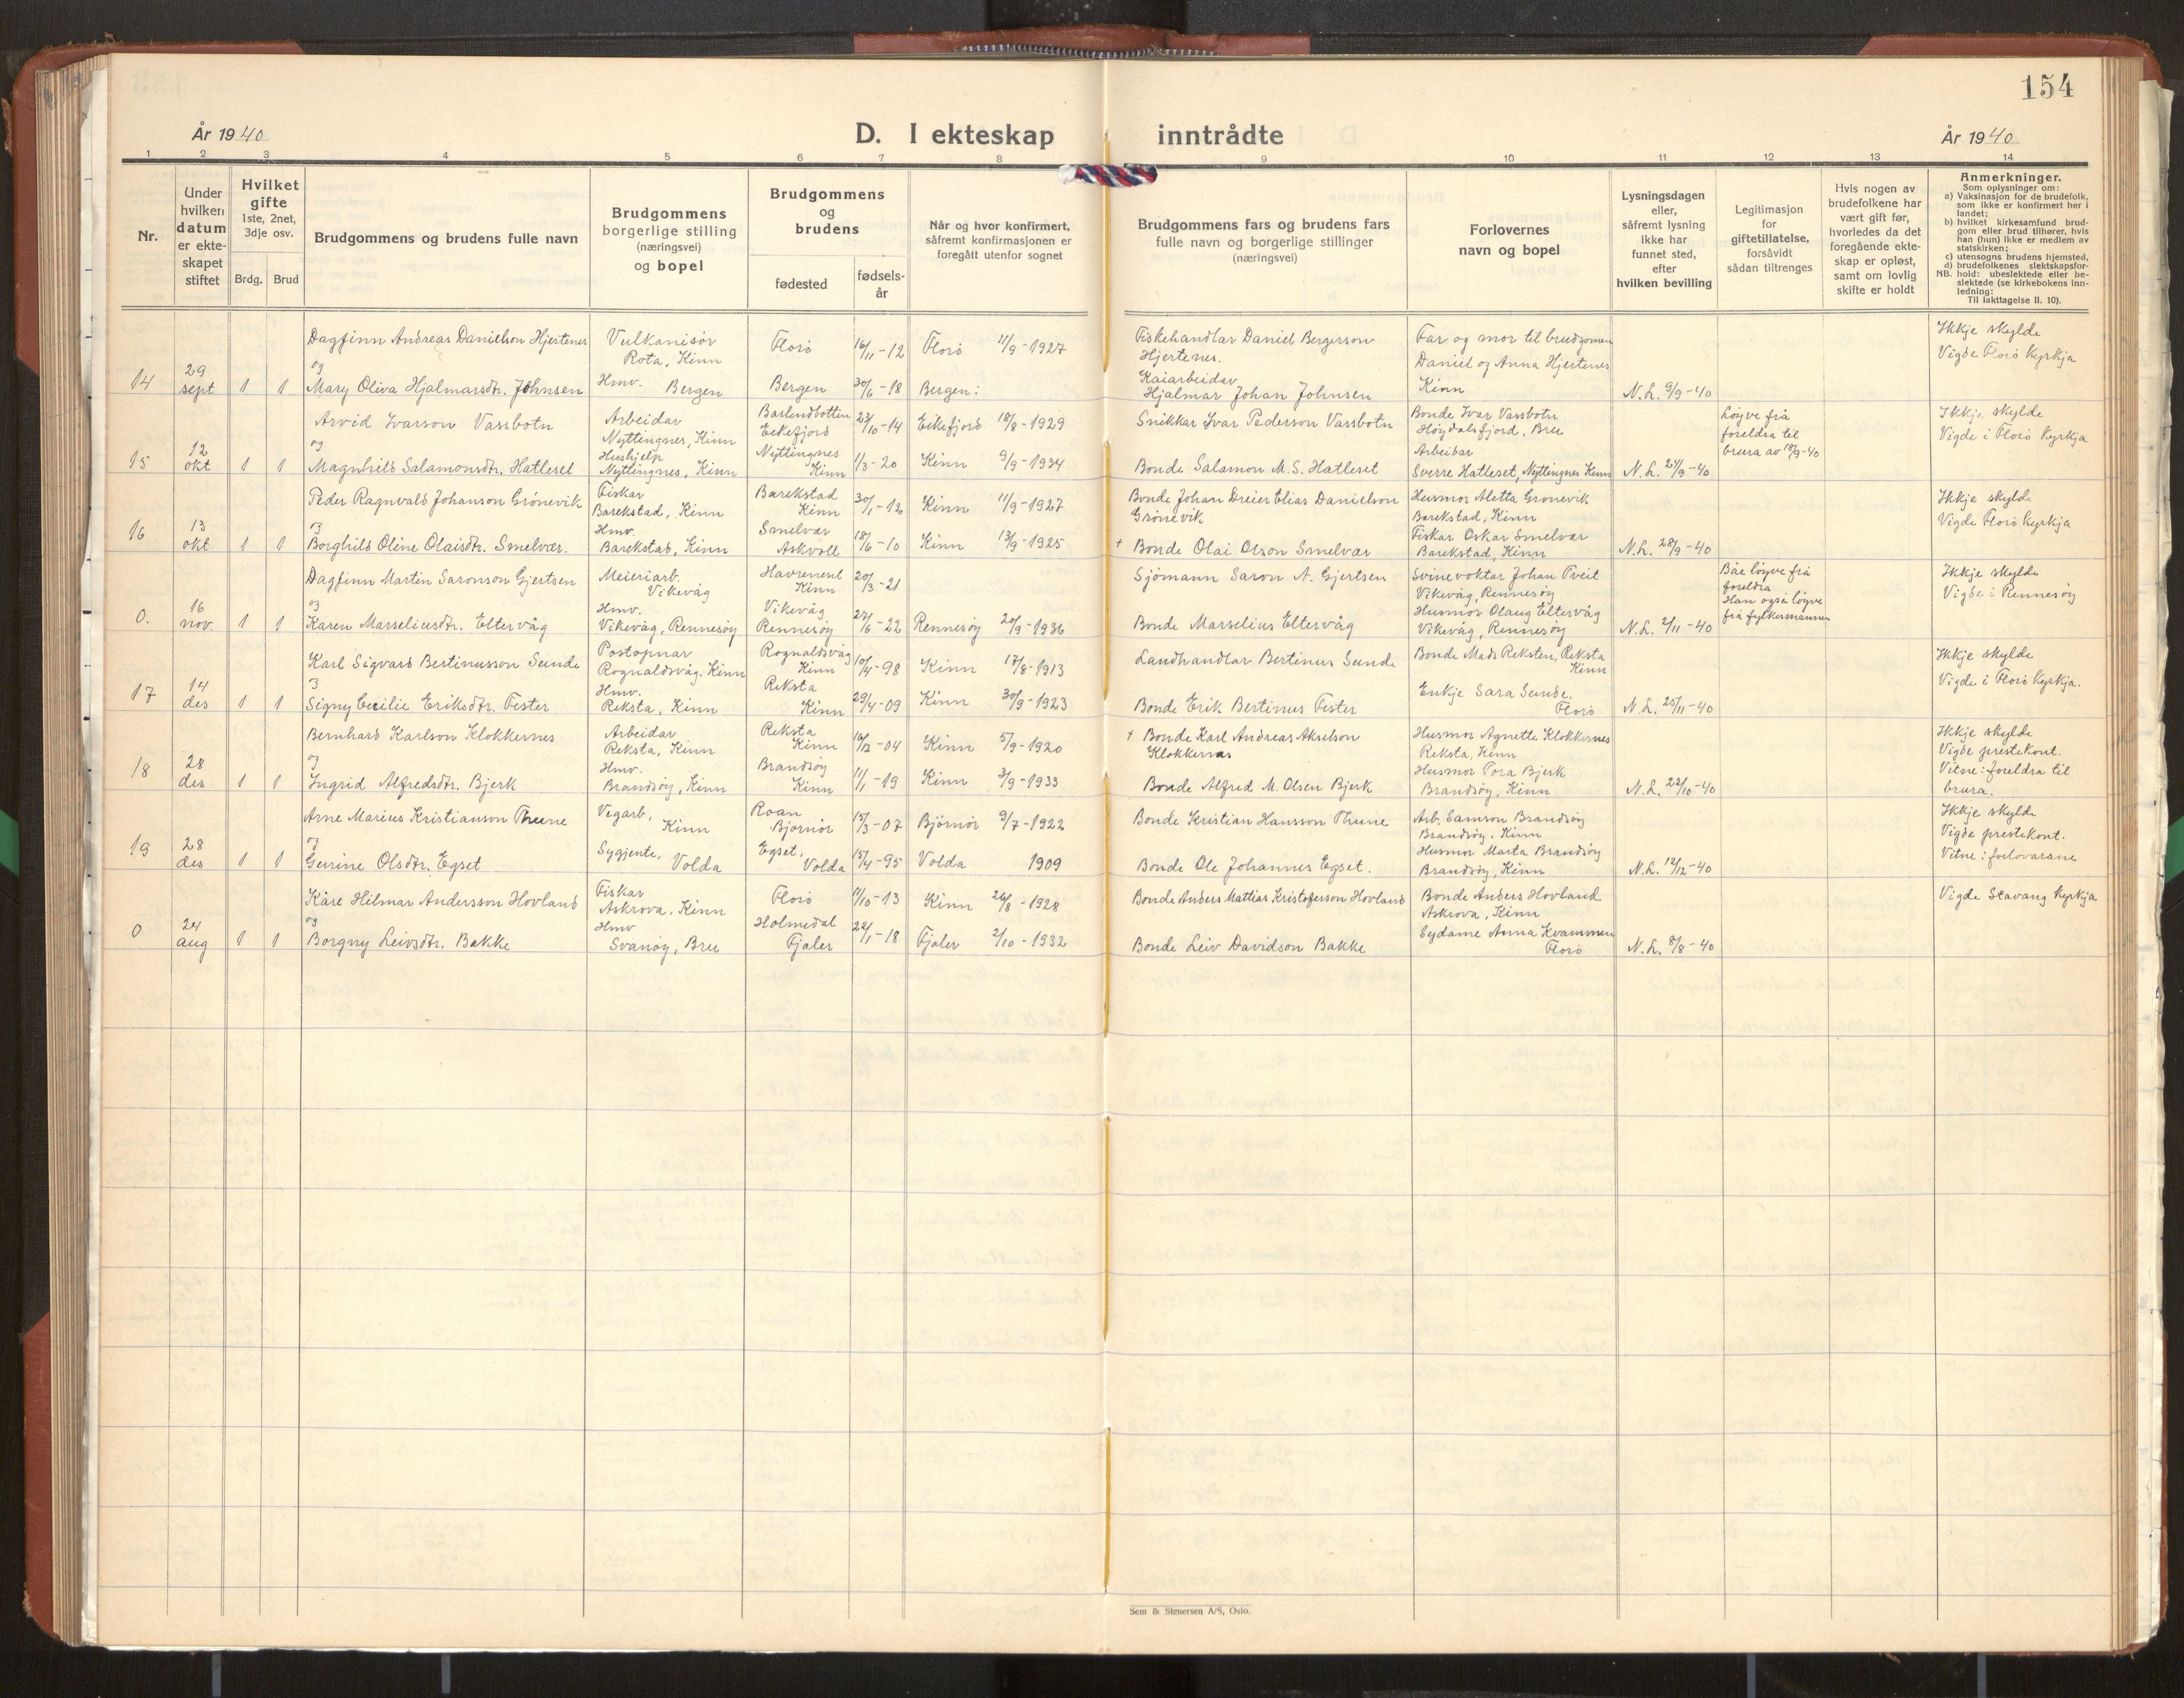 154
År 1940
D. I ekteskap inntrådte
År 1940
1 2 3 4 5 6 7 8 9 10 11 12 13 14
Nr.
Under
hvilken
datum
er ekte-
skapet
stiftet
Hvilket
gifte
1ste, 2net,
3dje osv.
Brdg. Brud
Brudgommens og brudens fulle navn
Brudgommens
borgerlige stilling
(næringsvei)
og bopel
Brudgommens
og
brudens
fødested
fødsels-
år
Når og hvor konfirmert,
såfremt konfirmasjonen er
foregått utenfor sognet
Brudgommens fars og brudens fars
fulle navn og borgerlige stillinger
(næringsvei)
Forlovernes
navn og bopel
Lysningsdagen
eller,
såfremt lysning
ikke har
funnet sted,
efter
hvilken bevilling
Legitimasjon
for
giftetillatelse,
forsåvidt
sådan tiltrenges
Hvis nogen av
brudefolkene har
vært gift før,
hvorledes da det
foregående ekte-
skap er opløst,
samt om lovlig
skifte er holdt
Anmerkninger.
Som oplysninger om:
a) Vaksinasjon for de brudefolk,
som ikke er konfirmert her i
landet;
b) hvilket kirkesamfund brud-
gom eller brud tilhører, hvis
han (hun) ikke er medlem av
statskirken;
c) utensogns brudens hjemsted,
d) brudefolkenes slektskapsfor-
NB. hold: ubeslektede eller be-
slektede (se kirkebokens inn-
ledning:
Til iakttagelse II. 10).
Dagfinn Andreas Danielson Hjertenes Vulkanisør Florø 16/11-12 Florø 11/9-1927 Fiskehandlar Daniel Bergerson Far og mor til brudgomen Ikkje skylde
Rota, Kinn Hjertenes. Daniel og Anna Hjertenes Vigde Florø Kyrkja
14 29 sept 1 1 og Mary Oliva Hjalmarsdtr. Johnsen Hmv. Bergen Bergen 30/6-18 Bergen: Kaiarbeidar Kinn N.L. 9/9-40
Hjalmar Johan Johnsen
Arvid Ivarson Vassbotn Arbeidar Barlundbotten 23/10-14 Eikefjord 18/8-1929 Snikkar Ivar Pederson Vassbotn Bonde Ivar Vassbotn Løyve frå Ikkje skylde
Nyttingnes, Kinn Eikefjord Høydalsfjord, Bru foreldra til Vigde i Florø Kyrkja
15 12 okt 1 1 og Magnhild Salamonsdtr. Hatleset Hushjelp Nyttingnes 1/3-20 Kinn 9/9-1934 Bonde Salamon M.S. Hatleset Arbeidar brura av 18/9-40
Nyttingnes, Kinn Kinn Sverre Hatleset, Nyttingnes Kinn N.L. 24/9-40
Peder Ragnvald Johanson Grönevik Fiskar Barekstad 30/1-12 Kinn 11/9-1927 Bonde Johan Dreier Elias Danielson Husmor Aletta Grønevik Ikkje skylde
Barekstad, Kinn Kinn Grönevik Barekstad, Kinn Vigde Florø Kyrkja
16 13 okt 1 1 og Borghild Oline Olaisdtr. Smelvær. Hmv. Smelvær 18/6-10 Kinn 13/9-1925 + Bonde Olai Olson Smelvær Fiskar Oskar Smelvær
Barekstad, Kinn Askvoll Barekstad, Kinn N.L. 28/9-40
Dagfinn Martin Saronson Gjertsen Meieriarb. 20/3-21 Sjömann Saron A. Gjertsen Svinevoktar Johan Tveit Båe løyve frå Ikkje skylde
Vikevåg Kinn Vikevåg, Rennesøy foreldra Vigde i Rennesøy
0. 16 nov. 1 1 og Karen Marseliusdtr. Eltervåg Hmv. Vikevåg 27/6-22 Rennesøy 20/9-1936 Bonde Marselius Eltervåg Husmor Olaug Eltervåg Han også løyve
Vikevåg, Rennesøy Rennesøy Vikevåg, Rennesøy N.L. 2/11-40 frå fylkesmannen
Karl Sigvard Bertinusson Sunde Postopnar Rognaldsvåg 10/4-98 Kinn 17/8-1913 Landhandlar Bertinus Sunde Bonde Mads Reksten, Reksta Ikkje skylde
Rognaldsvåg. Kinn Kinn Kinn Vigde i Florø Kyrkja.
17 14 des 1 1 og Signy Cecilie Eriksdtr. Fester Hmv. Reksta 29/4-09 Kinn 30/9-1923 Bonde Erik Bertinus Fester Enkje Sara Sunde.
Reksta, Kinn Kinn Florø N.L. 25/11-40
Bernhard Karlson Klokkernes Arbeidar Reksta 16/12-04 Kinn 5/9-1920 + Bonde Karl Andreas Akselson Husmor Agnette Klokkernes Ikkje skylde
Reksta, Kinn Kinn Klokkernes Reksta, Kinn Vigde prestekont.
18 28 des 1 1 og Ingrid Alfredsdtr. Bjerk Hmv. Brandsøy 11/1-19 Kinn 3/9-1933 Bonde Alfred M. Olsen Bjerk Husmor Tora Bjerk Vitne: foreldra til
Brandsøy, Kinn Kinn Brandsøy, Kinn N.L. 22/10-40 brura.
Arne Marius Kristianson Thune Vegarb, Roan 15/3-07 Bjørnør 9/7-1922 Bonde Kristian Hansson Thune Arb. Samson Brandsøy Ikkje skylde
Kinn Bjørnør Brandsøy, Kinn Vigde prestekont.
19 28 des 1 1 og Gurine Olsdtr. Egset Sygjente, Volda Egset, Volda 15/4-95 Volda 1909 Bonde Ole Johannes Egset. Husmor Marta Brandsøy Vitne: forlovarane
Brandsøy, Kinn N.L. 12/12-40
Kåre Hilmar Andersson Hovland Fiskar Florø 11/10-13 Kinn 26/8-1928 Bonde Anders Mattias Kristoferson Hovland Bonde Anders Hovland Vigde Stavang Kyrkja
Askrova, Kinn Askrova, Kinn
0 24 aug 1 1 og Borgny Leivsdtr. Bakke Hmv Holmedal 22/1-18 Fjaler 2/10-1932 Bonde Leiv Davidson Bakke Sydame Anna Kvammen
Svanøy, Bru Fjaler Florø N.L. 8/8-40
Sem & Stenersen A/S, Oslo.